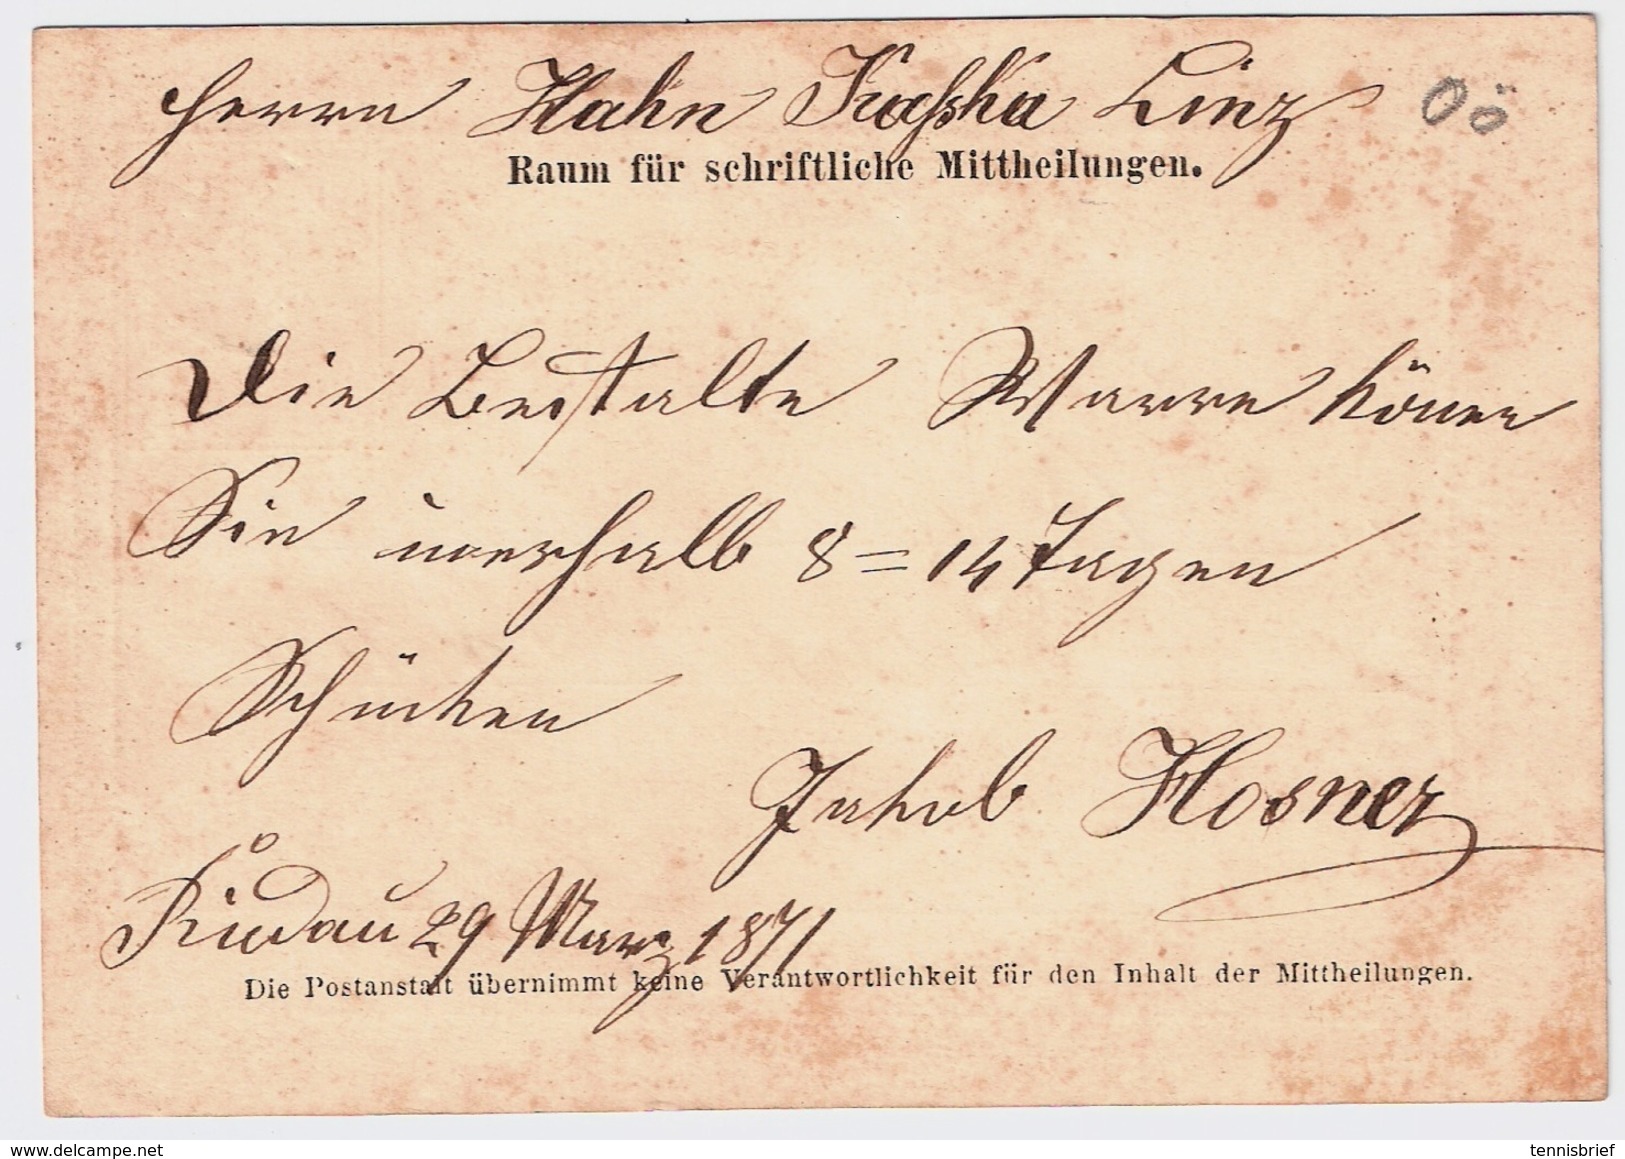 Herrn Hahn Kafska Linz
Oö
Raum für schriftliche Mittheilungen.
Die Bestalte Warre könen
Sie inerhalb 8 = 14 Tagen
Schücken
Jakob Hosner
29 Marz 1871
Die Postanstalt übernimmt keine Verantwortlichkeit für den Inhalt der Mittheilungen.
tennisbrief